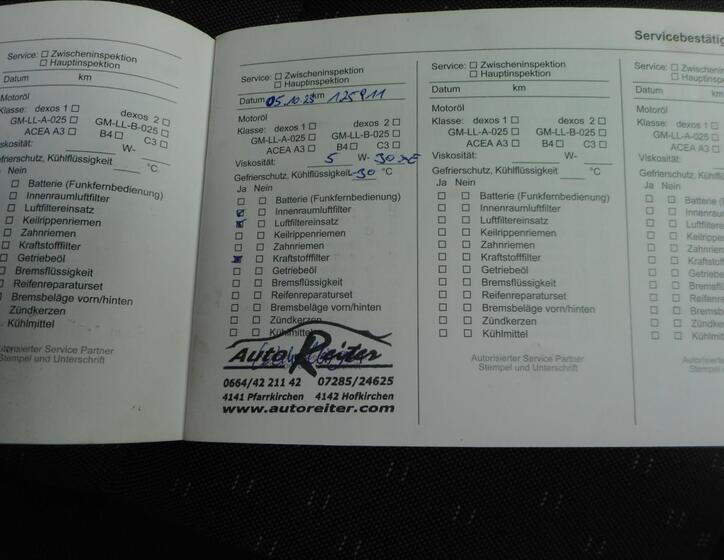 Service: □ Zwischeninspektion
□ Hauptinspektion
Datum km
Motoröl
Klasse: dexos 1 □ dexos 2 □
GM-LL-A-025 □ GM-LL-B-025 □
ACEA A3 □ B4 □ C3 □
Viskosität: W-
Gefrierschutz, Kühlflüssigkeit °C
Nein
□ Batterie (Funkfernbedienung)
□ Innenraumluftfilter
□ Luftfiltereinsatz
□ Keilrippenriemen
□ Zahnriemen
□ Kraftstofffilter
□ Getriebeöl
□ Bremsflüssigkeit
□ Reifenreparaturset
□ Bremsbeläge vorn/hinten
Zündkerzen
Kühlmittel
Autorisierter Service Partner
Stempel und Unterschrift
Service: □ Zwischeninspektion
□ Hauptinspektion
Datum 05.10.23 km 125911
Motoröl
Klasse: dexos 1 □ dexos 2 □
GM-LL-A-025 □ GM-LL-B-025 □
ACEA A3 □ B4 □ C3 □
Viskosität: 5 W- 30
Gefrierschutz, Kühlflüssigkeit -30 °C
Ja Nein
□ □ Batterie (Funkfernbedienung)
☒ □ Innenraumluftfilter
☒ □ Luftfiltereinsatz
□ □ Keilrippenriemen
□ □ Zahnriemen
☒ □ Kraftstofffilter
□ □ Getriebeöl
□ □ Bremsflüssigkeit
□ □ Reifenreparaturset
□ □ Bremsbeläge vorn/hinten
□ □ Zündkerzen
□ □ Kühlmittel
Auto Reiter
0664/42 211 42 07285/24625
4141 Pfarrkirchen 4142 Hofkirchen
www.autoreiter.com
Service: □ Zwischeninspektion
□ Hauptinspektion
Datum km
Motoröl
Klasse: dexos 1 □ dexos 2 □
GM-LL-A-025 □ GM-LL-B-025 □
ACEA A3 □ B4 □ C3 □
Viskosität: W-
Gefrierschutz, Kühlflüssigkeit °C
Ja Nein
□ □ Batterie (Funkfernbedienung)
□ □ Innenraumluftfilter
□ □ Luftfiltereinsatz
□ □ Keilrippenriemen
□ □ Zahnriemen
□ □ Kraftstofffilter
□ □ Getriebeöl
□ □ Bremsflüssigkeit
□ □ Reifenreparaturset
□ □ Bremsbeläge vorn/hinten
□ □ Zündkerzen
□ □ Kühlmittel
Autorisierter Service Partner
Stempel und Unterschrift
Servicebestätig
Service: □ Zwischeninspe
□ Hauptinspek
Datum km
Motoröl
Klasse: dexos 1 □
GM-LL-A-025 □
ACEA A3 □
Viskosität:
Gefrierschutz, Kühlflüssig
Ja Nein
□ □ Batterie (F
□ □ Innenraum
□ □ Luftfilterei
□ □ Keilrippen
□ □ Zahnrieme
□ □ Kraftstofff
□ □ Getriebeö
□ □ Bremsflüs
□ □ Reifenrep
□ □ Bremsbel
□ □ Zündkerz
□ □ Kühlmitte
Autorisierter Se
Stempel und